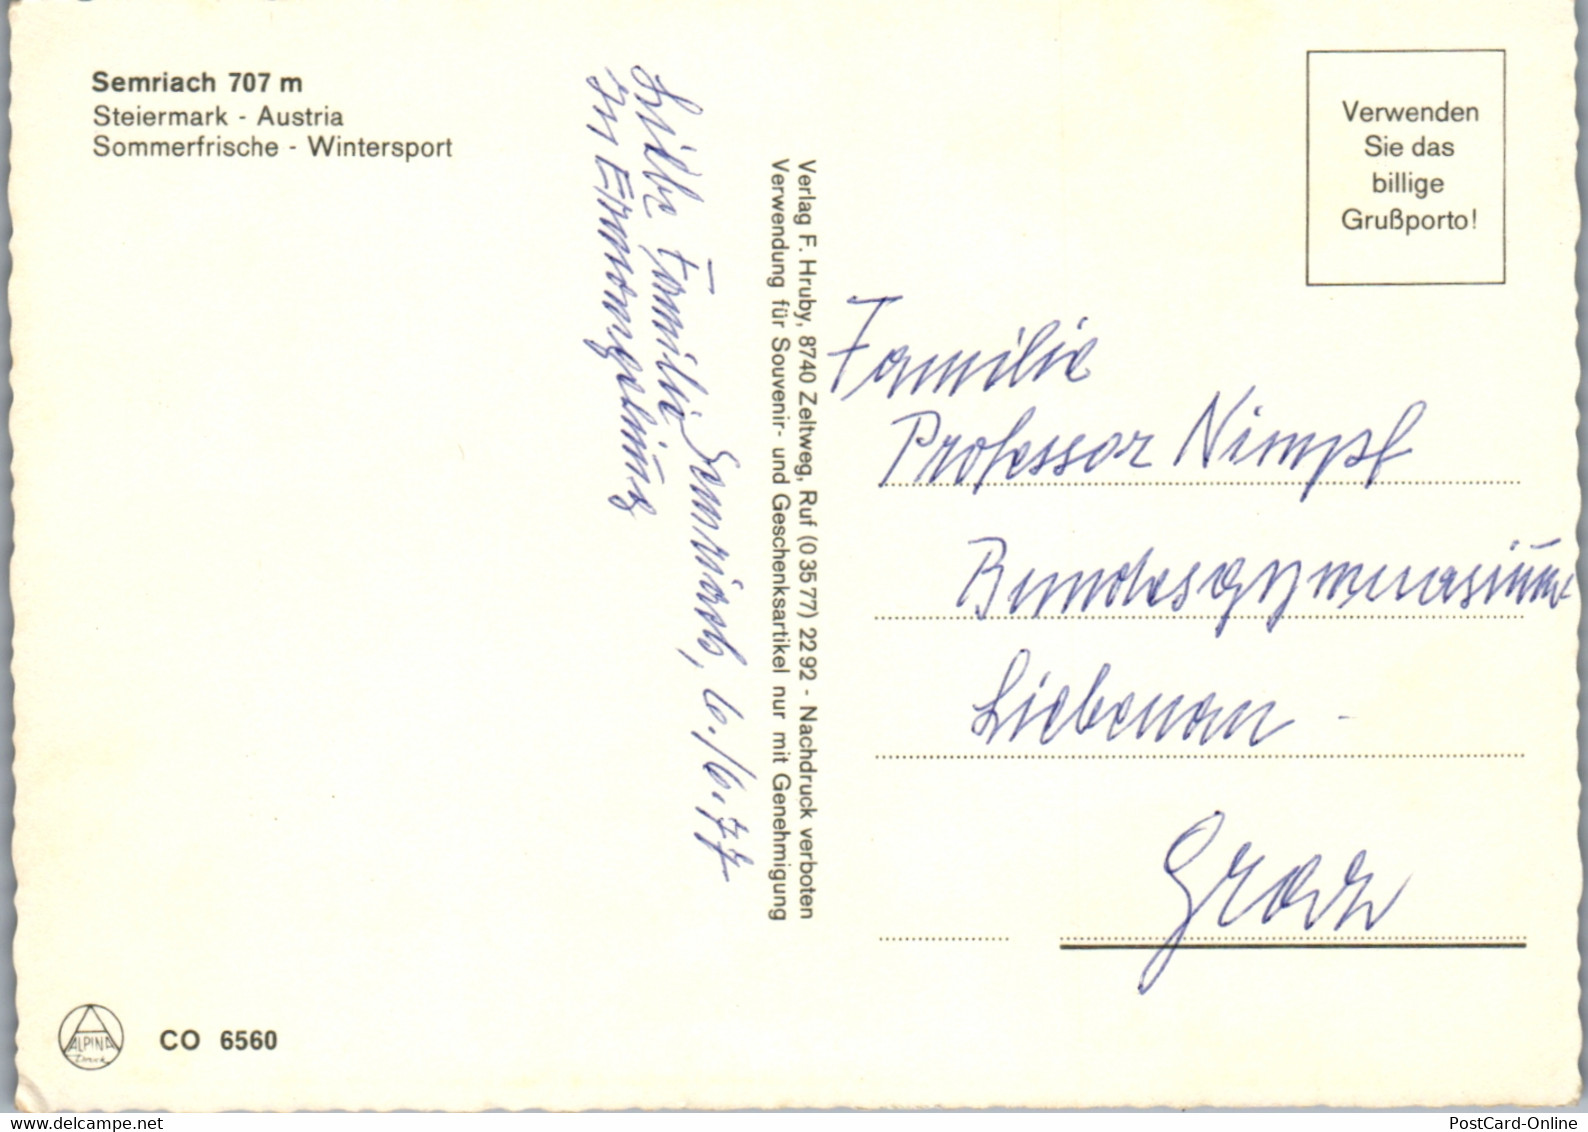 Semriach 707 m
Steiermark - Austria
Sommerfrische - Wintersport
Verwenden
Sie das
billige
Grußporto!
Semriach, 6./6.77
Liebe Familie
In Ermangelung
Verlag F. Hruby, 8740 Zeltweg, Ruf (0 35 77) 22 92 - Nachdruck verboten
Verwendung für Souvenir- und Geschenksartikel nur mit Genehmigung
Familie
Professor Nimpf
Bundesgymnasium
Liebenau -
Graz
ALPINA
Druck
CO 6560
PostCard-Online
www.delcampe.net